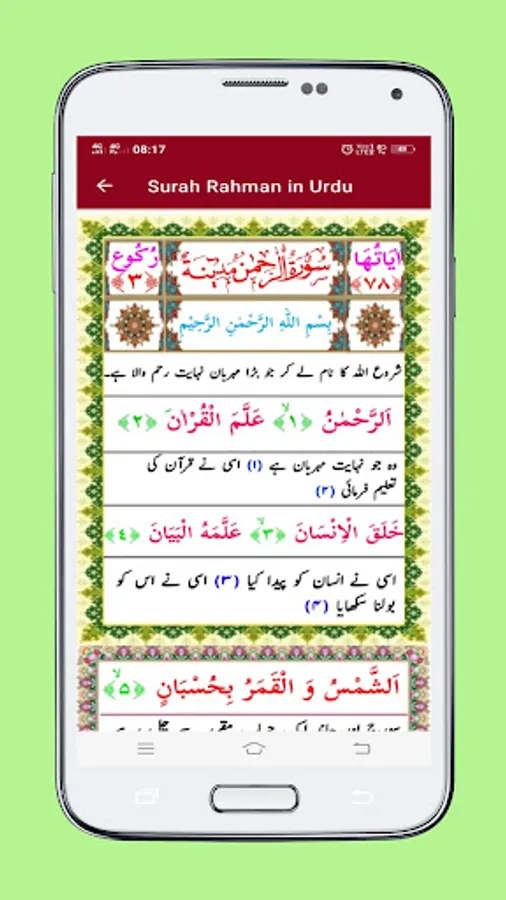 08:17
Surah Rahman in Urdu
اٰيَاتُهَا سُوْرَةُ الرَّحْمٰنِ مَدَنِيَّةٌ رُكُوْع
﴿٧٨﴾ ﴿٣﴾
بِسْمِ اللّٰهِ الرَّحْمٰنِ الرَّحِيْمِ
شروع اللہ کا نام لے کر جو بڑا مہربان نہایت رحم والا ہے۔
اَلرَّحْمٰنُ ﴿۱﴾ عَلَّمَ الْقُرْاٰنَ ﴿۲﴾
وہ جو نہایت مہربان ہے (۱) اسی نے قرآن کی
تعلیم فرمائی (۲)
خَلَقَ الْاِنْسَانَ ﴿۳﴾ عَلَّمَهُ الْبَيَانَ ﴿۴﴾
اسی نے انسان کو پیدا کیا (۳) اسی نے اس کو
بولنا سکھایا (۴)
اَلشَّمْسُ وَ الْقَمَرُ بِحُسْبَانٍ ﴿۵﴾